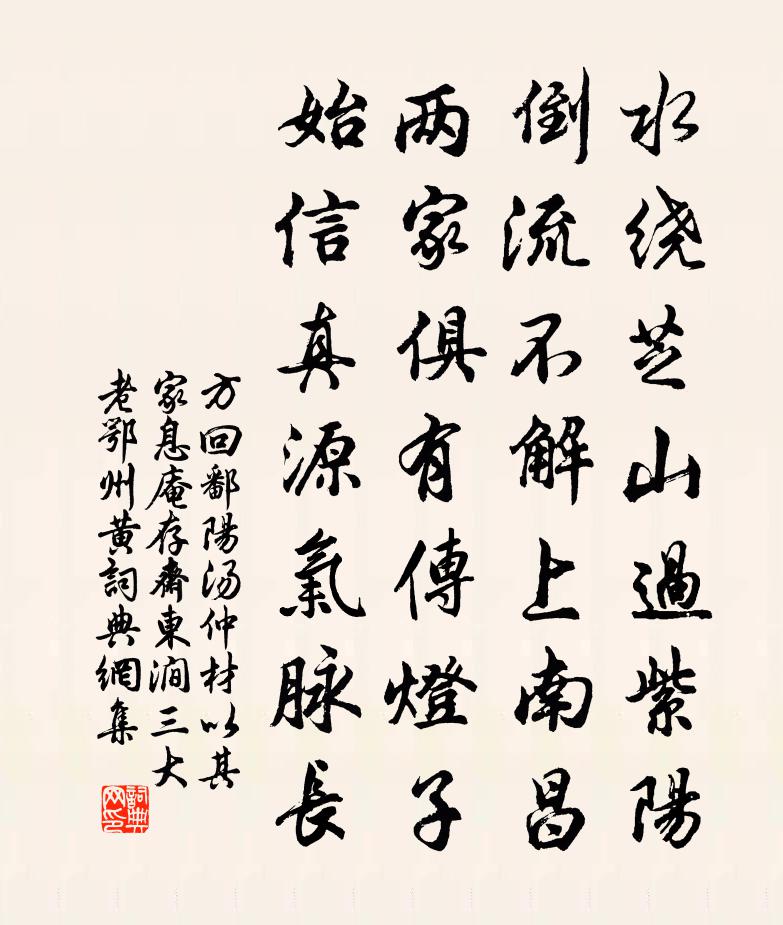 水绕芝山過紫陽
倒流不解上南昌
两家俱有傳燈子
始信真源氣脉長
方回鄱陽汤仲材以其
家息庵存齋東澗三大
老鄂州黄詞典網集
詞典网印